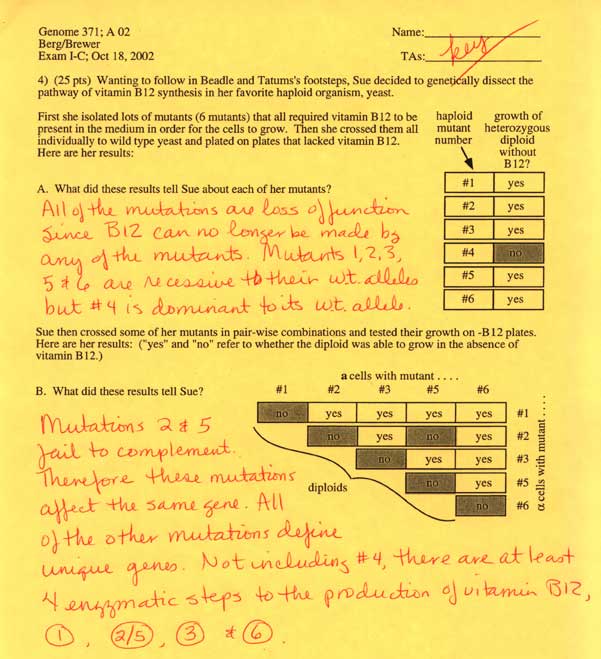 Genome 371; A 02
Berg/Brewer
Exam I-C; Oct 18, 2002
Name: key
TAs:
4) (25 pts) Wanting to follow in Beadle and Tatums's footsteps, Sue decided to genetically dissect the
pathway of vitamin B12 synthesis in her favorite haploid organism, yeast.
First she isolated lots of mutants (6 mutants) that all required vitamin B12 to be
present in the medium in order for the cells to grow. Then she crossed them all
individually to wild type yeast and plated on plates that lacked vitamin B12.
Here are her results:
haploid mutant number
growth of heterozygous diploid without B12?
#1 yes
#2 yes
#3 yes
#4 no
#5 yes
#6 yes
A. What did these results tell Sue about each of her mutants?
All of the mutations are loss of function
since B12 can no longer be made by
any of the mutants. Mutants 1, 2, 3,
5 & 6 are recessive to their wt. alleles
but #4 is dominant to its w.t. allele.
Sue then crossed some of her mutants in pair-wise combinations and tested their growth on -B12 plates.
Here are her results: ("yes" and "no" refer to whether the diploid was able to grow in the absence of
vitamin B12.)
B. What did these results tell Sue?
a cells with mutant . . . .
#1 #2 #3 #5 #6
no yes yes yes yes #1
no yes no yes #2
no yes yes #3
no yes #5
no #6
diploids
α cells with mutant . . . .
Mutations 2 & 5
fail to complement.
Therefore these mutations
affect the same gene. All
of the other mutations define
unique genes. Not including #4, there are at least
4 enzymatic steps to the production of vitamin B12,
1, 2/5, 3 & 6.